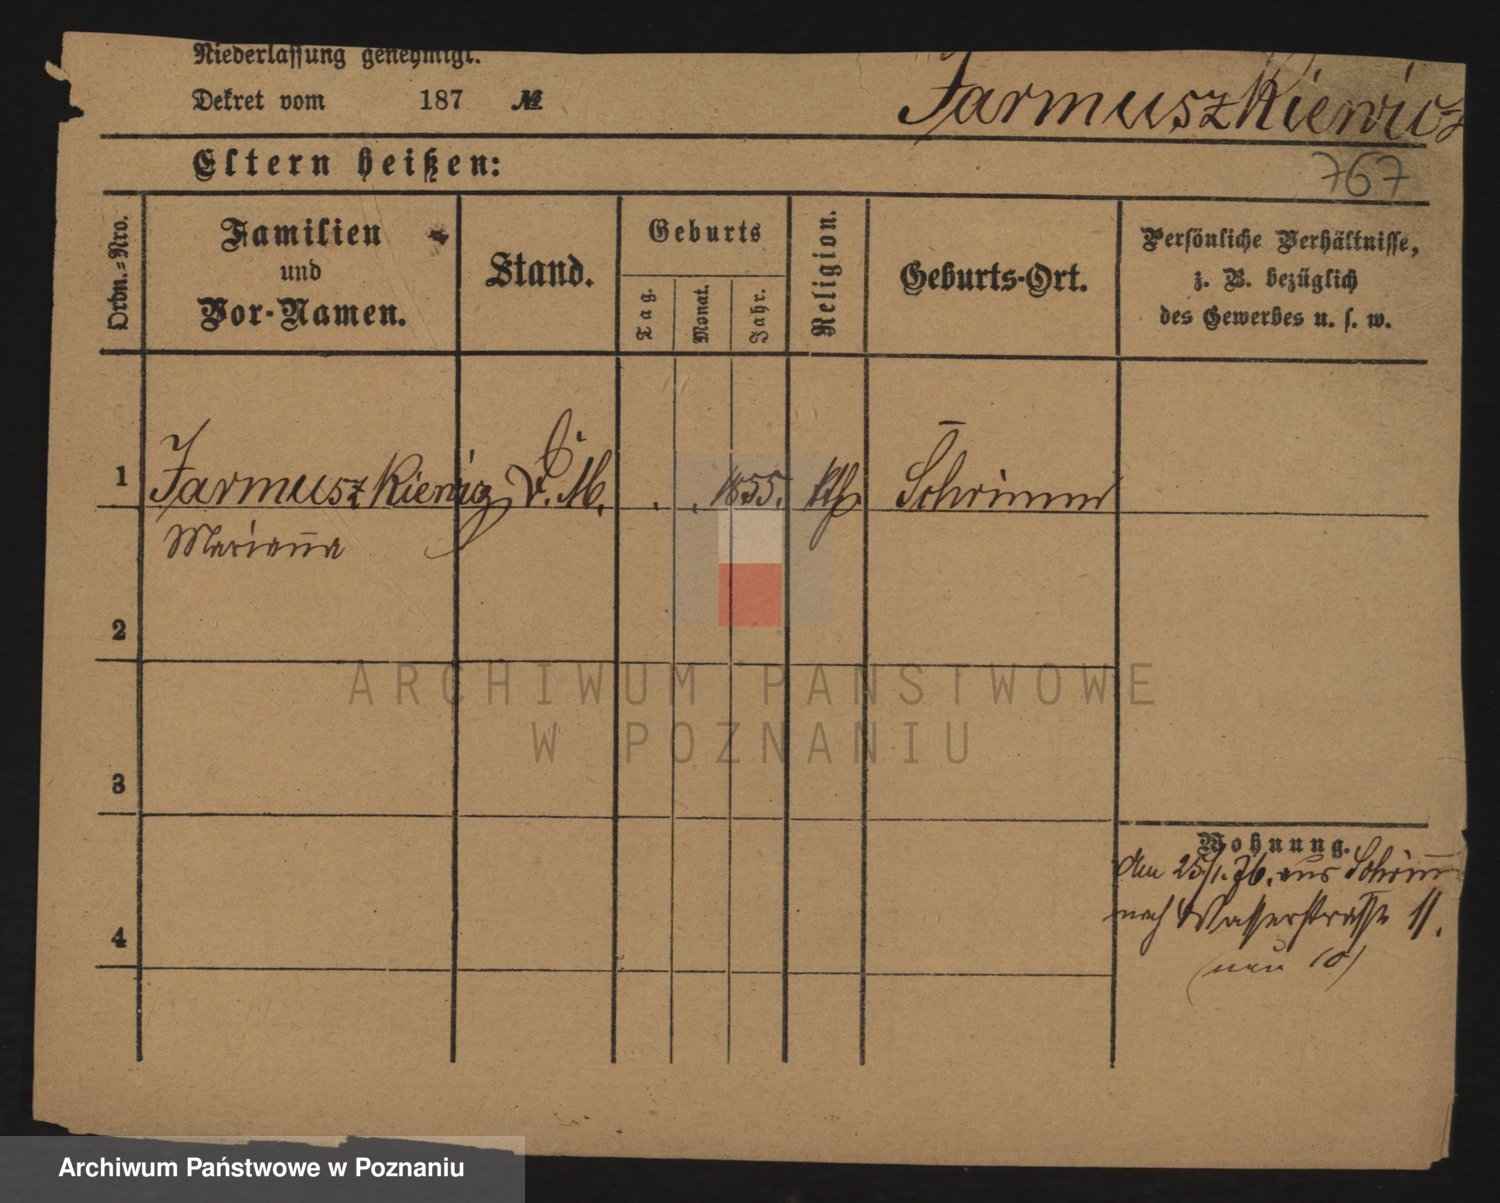 Niederlassung genehmigt.
Dekret vom 187 №
Jarmuszkiewicz
Eltern heißen:
767
Ordn.-Nro.
Familien
und
Vor-Namen.
Stand.
Geburts
Tag.
Monat.
Jahr.
Religion.
Geburts-Ort.
Persönliche Verhältnisse,
z. B. bezüglich
des Gewerbes u. s. w.
1 Jarmuszkiewicz D. M. . . 1855. kth Schrimm
Marianna
2
3
4
Wohnung.
Am 25/1. 76. aus Schrimm
nach Wasserstrasse 11.
(neu 10)
ARCHIWUM PAŃSTWOWE
W POZNANIU
Archiwum Państwowe w Poznaniu